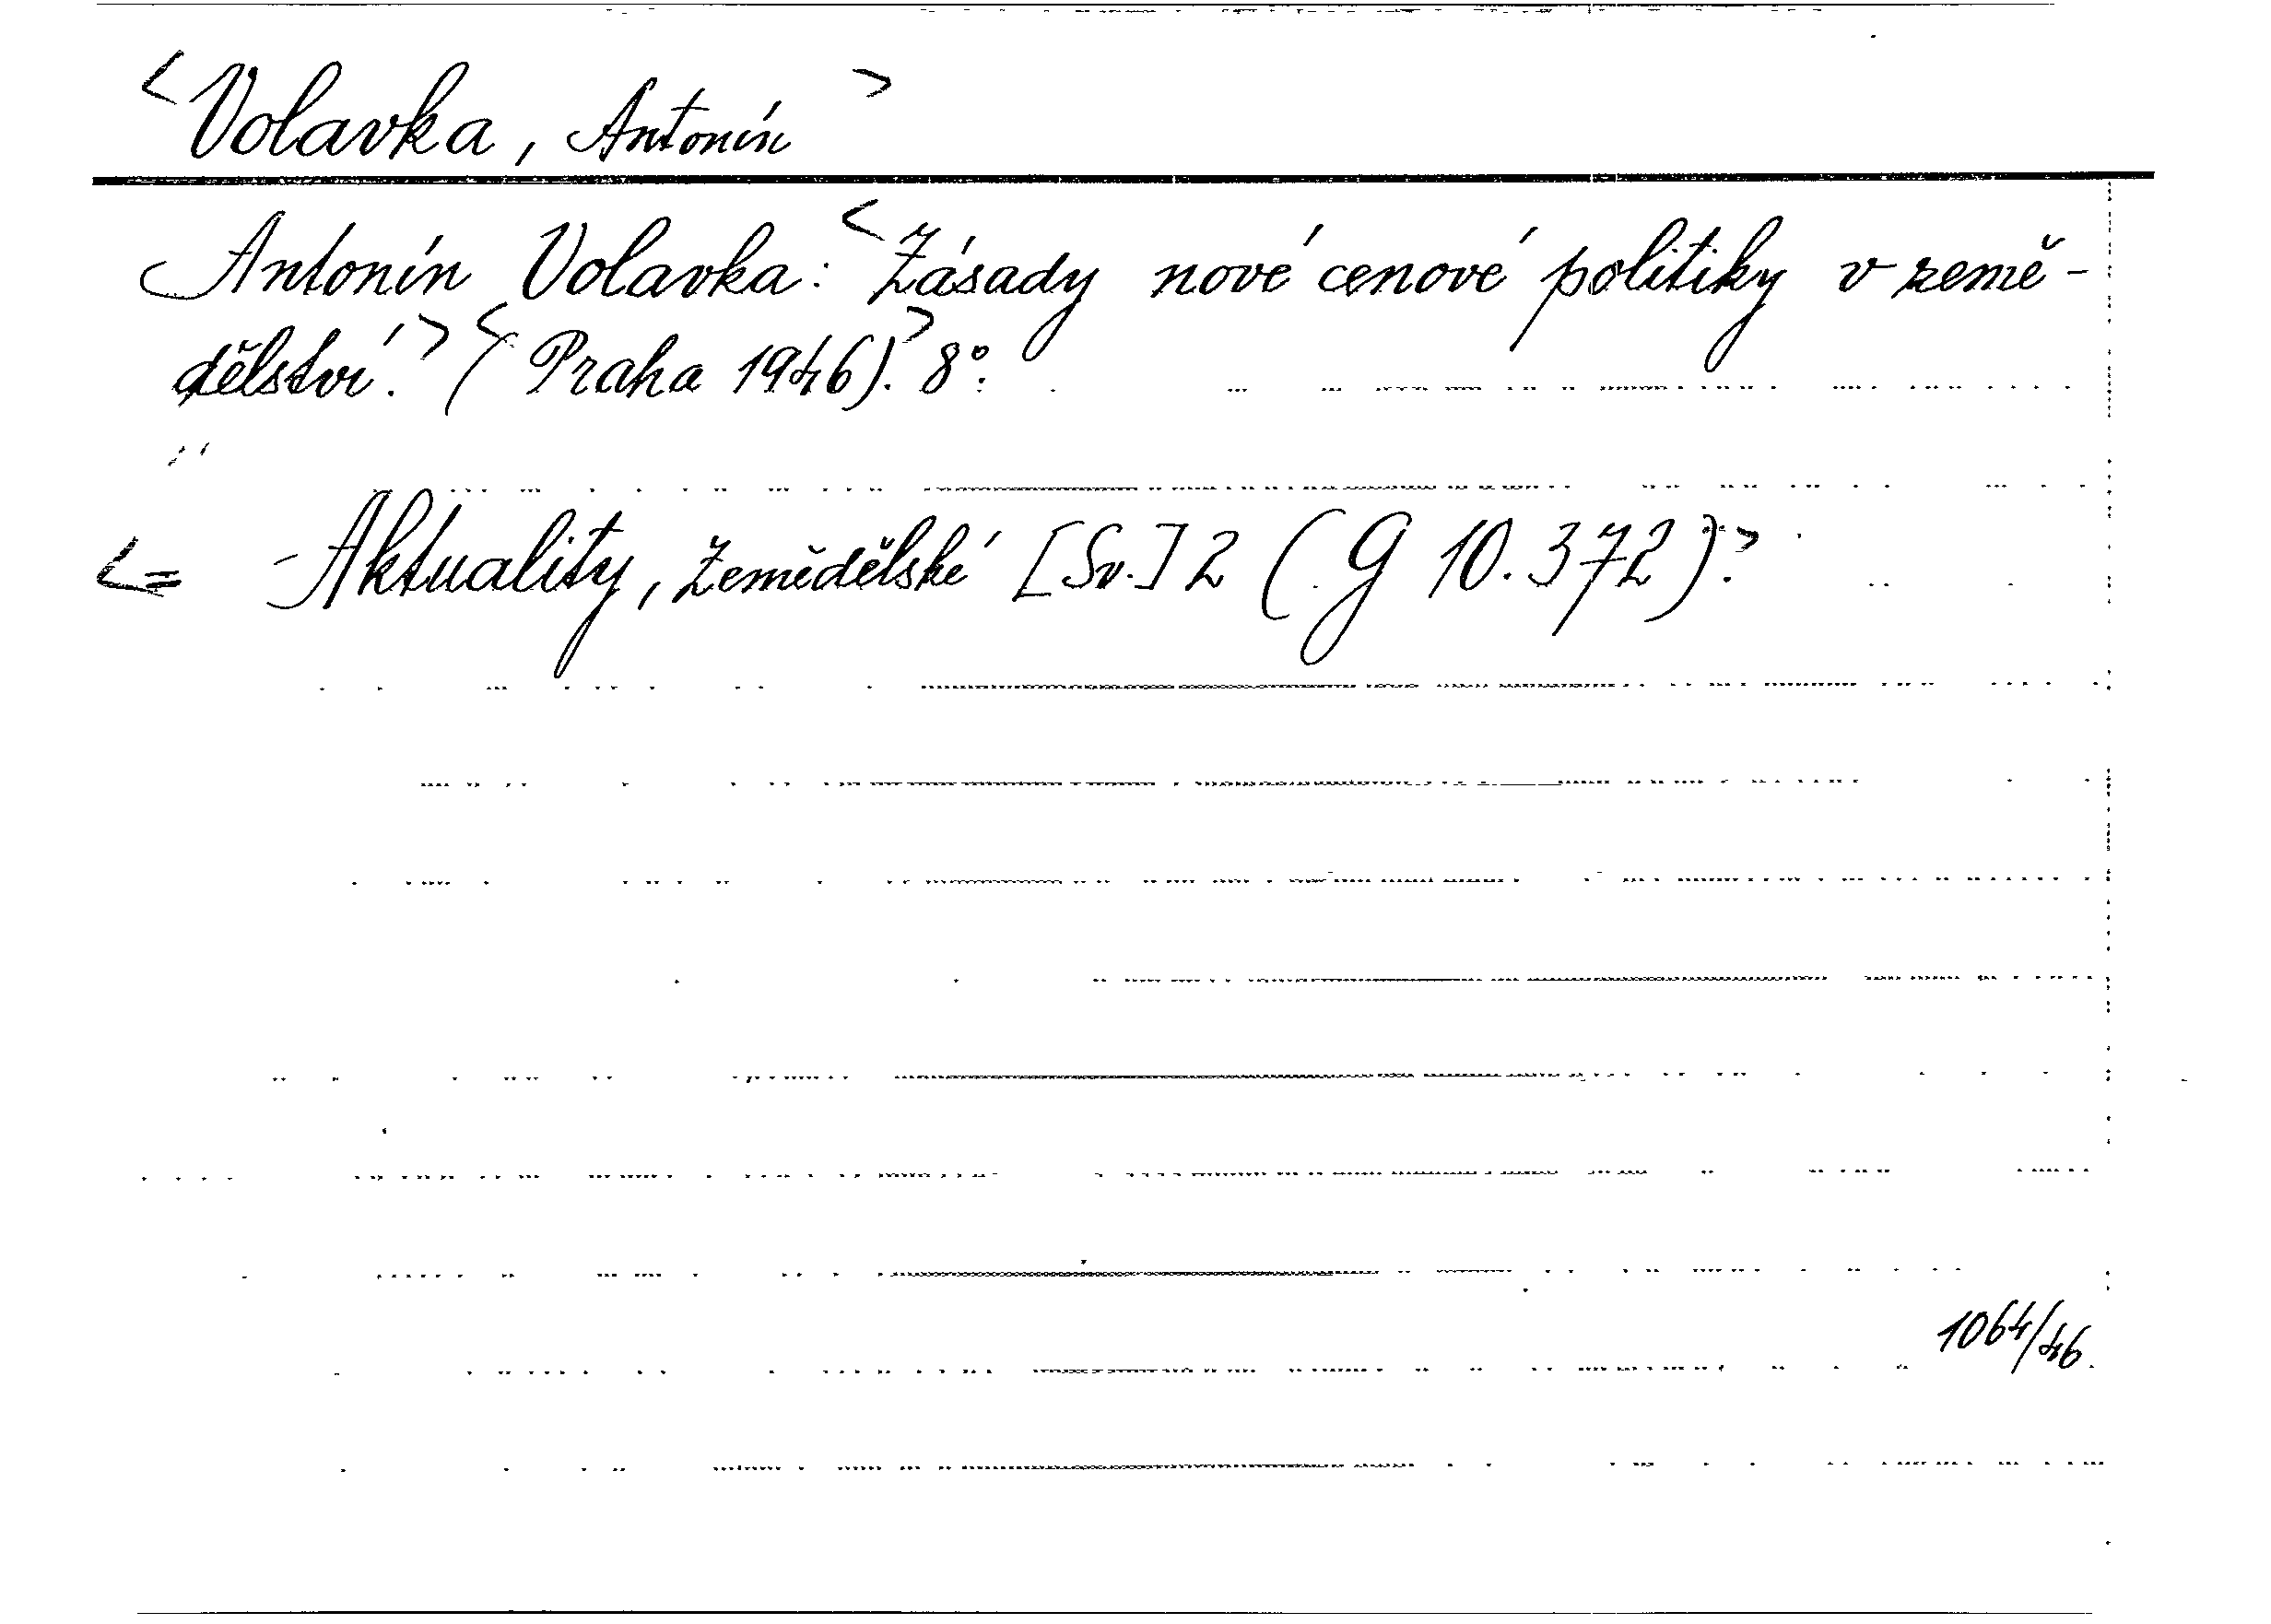 <Volavka, Antonín>
Antonín Volavka: <Zásady nové cenové politiky v země-
dělství.> <(Praha 1946).> 8°.
<= Aktuality, Zemědělské [Sv.] 2 (G 10.372).>
1064/46.